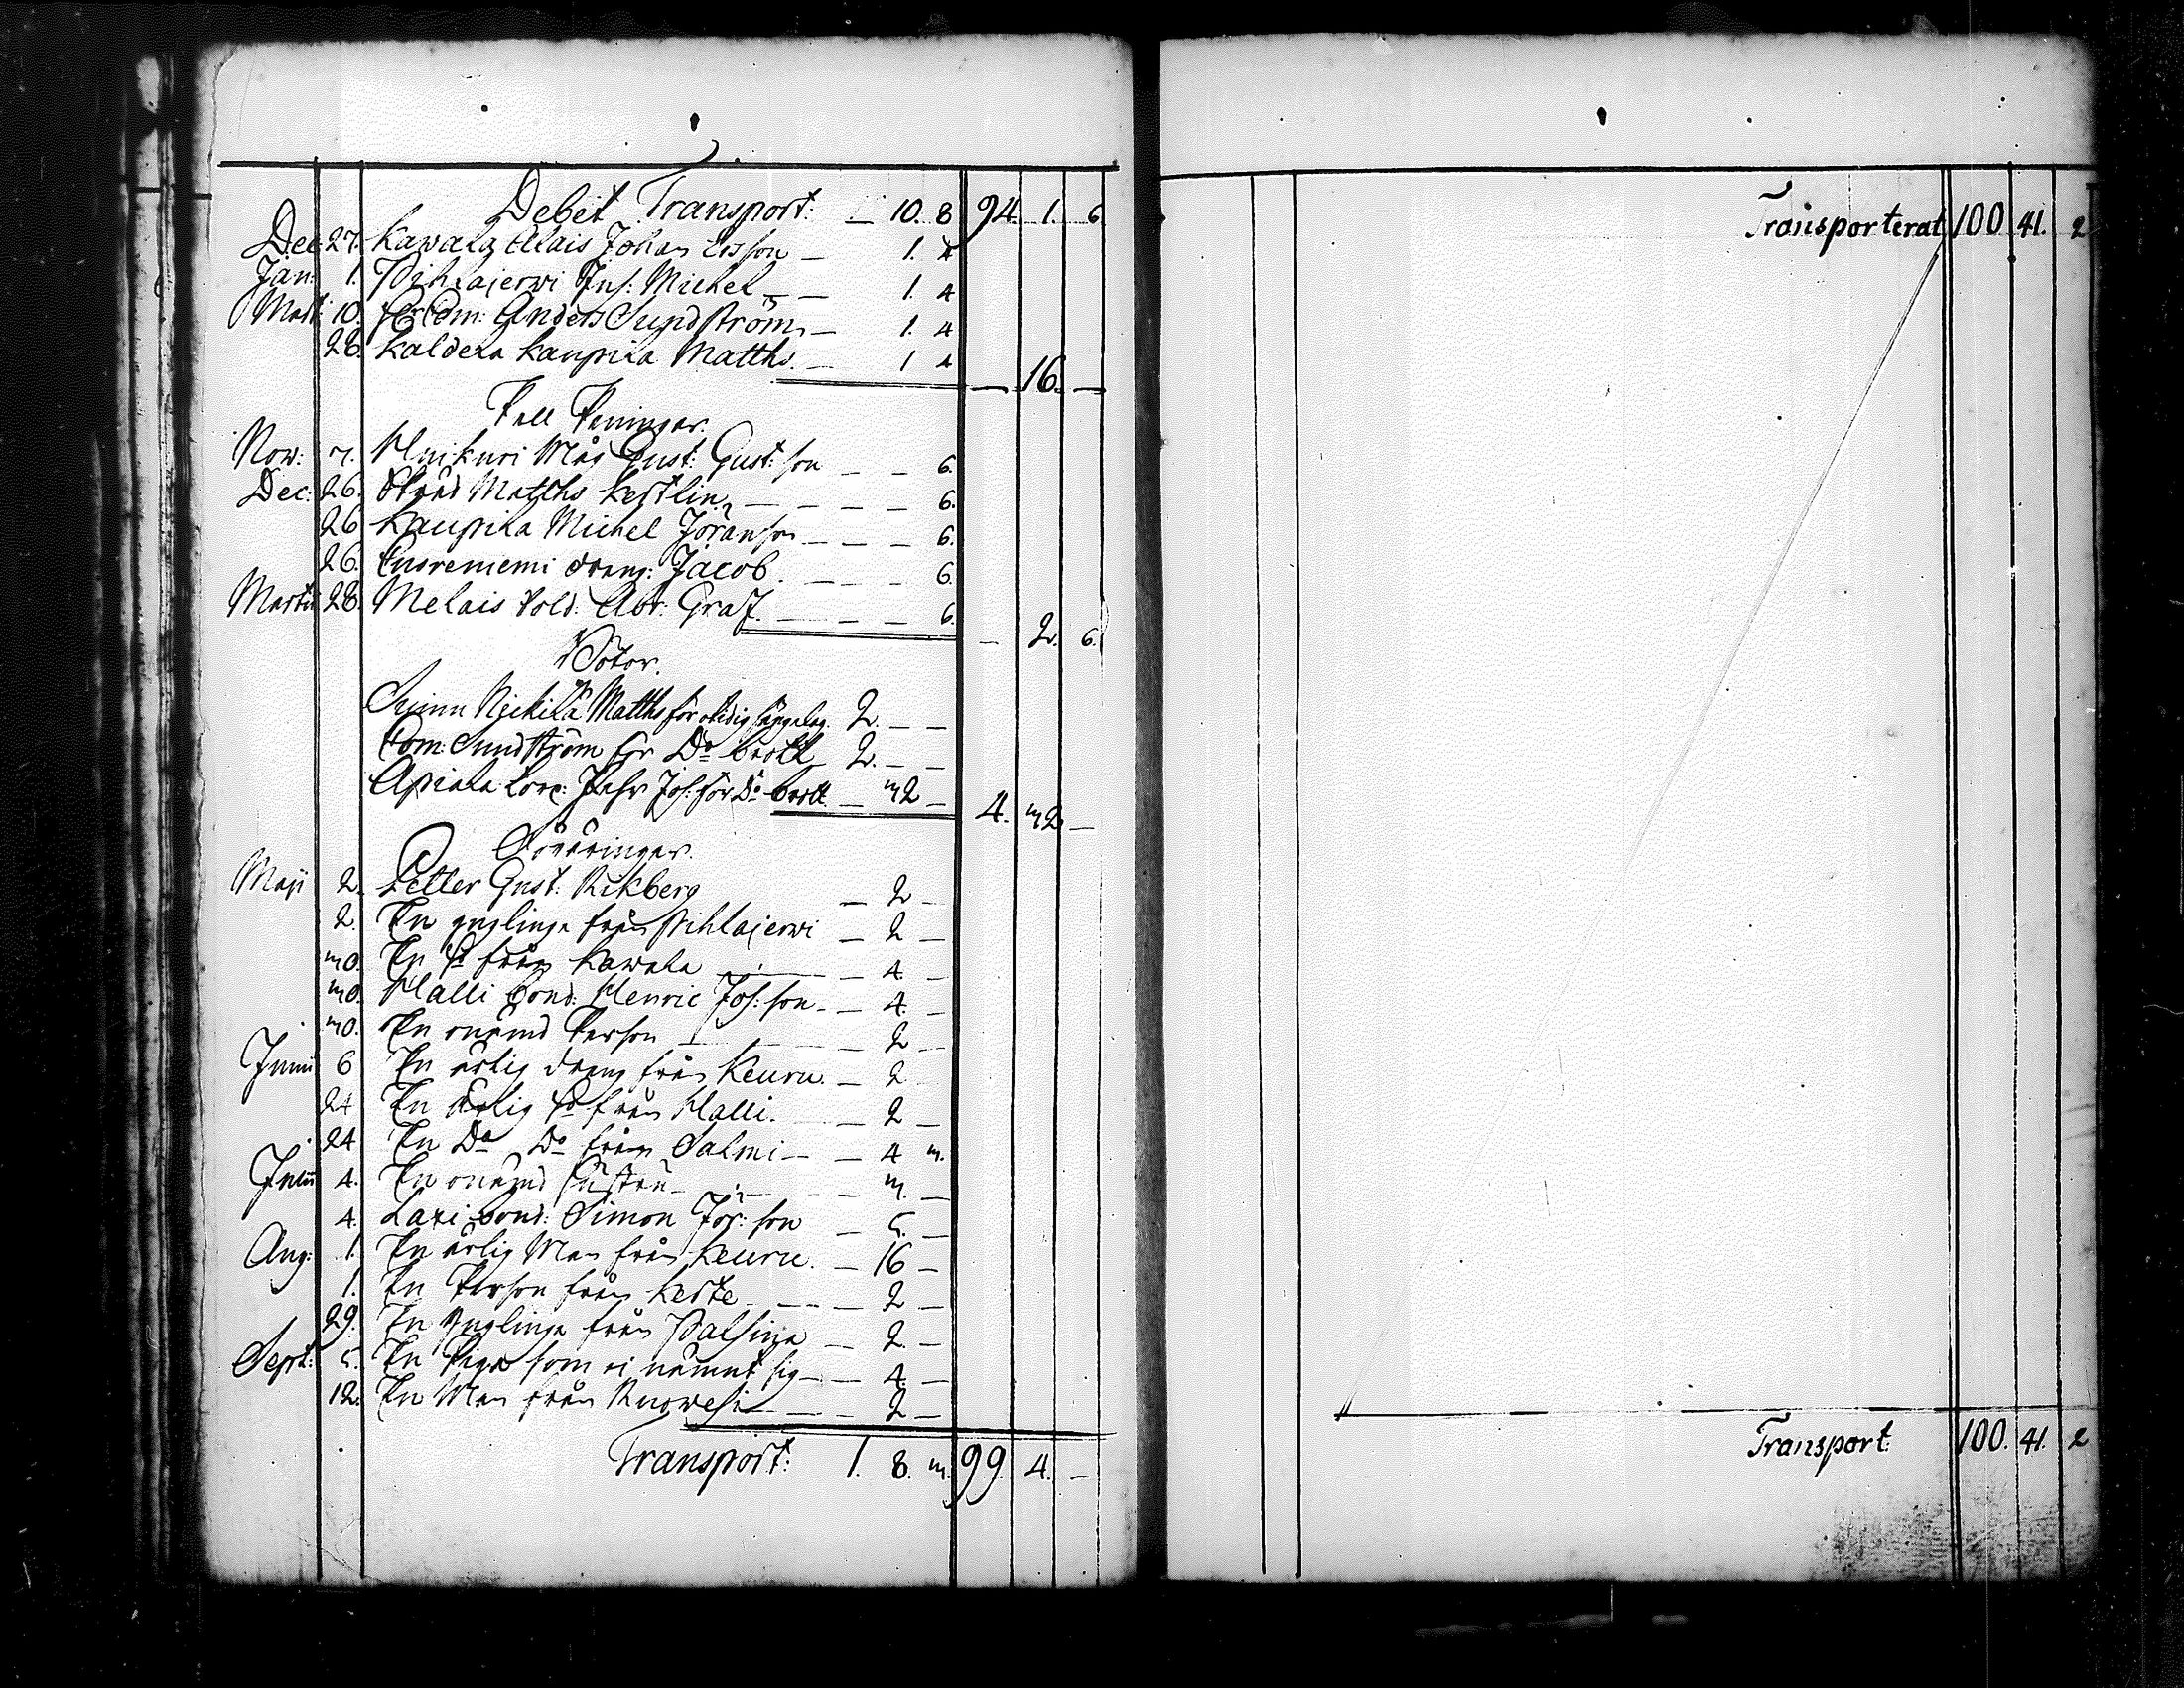 Debet Transport: — 10. 8 94. 1. 6
Dec: 27. Kawala Elais Johan Ersson — 1. 4
Jan: 1. Pihlajerwi Inh: Michel — — 1. 4
Mart: 10. Anders Sundström — 1. 4
28. Kaldera Kaupila Matths. — 1 4
— 16. —
Pell Peningar.
Now: 7. Huikuri Måg Gust: Gust:son — — 6.
Dec: 26. Matths Kertlin — — — — 6.
26 Kaupila Michel Jöranson — — — 6.
26. Enoreniemi dräng: Jacob. — — — 6.
Martii 28. Melais Sold: Abr: Graf. — — — 6.
— 2. 6.
Böter.
Suinu Nickila Matths för otidig sängelag. 2. — —
Com: Sundström för Do brott 2. — —
Apiala Jos: för Do brott — 32 —
4. 32 —
Gåfvingar.
Maji 2. Petter Gust: Rikberg — 2 —
2. En yngling från Pihlajerwi — 2 —
30. En Do från Kawala — — 4. —
30. Halli Bond: Henric Joh:son — — 4. —
30. En onämd Person — — 2 —
Junii 6 En ärlig dräng från Keuru. — 2 —
24 En ärlig Do från Halli. — 2 —
24 En Do Do från Salmi — — 4 3.
Julii 4. En onämd — — 3. —
4. Laxi Bond: Simon Jör:son — 5. —
Aug: 1. En ärlig Man från Keuru. — 16 —
1. En Person från Kerte — — — 2 —
29. En Yngling från Palsina — 2. —
Sept: 5. En Piga som ei nämnt sig — — 4. —
12. En Man från Ruowesi — — — 2 —
Transport: 1. 8. 3. 99. 4. —
Transporterat 100 41. 2
Transport: 100. 41. 2